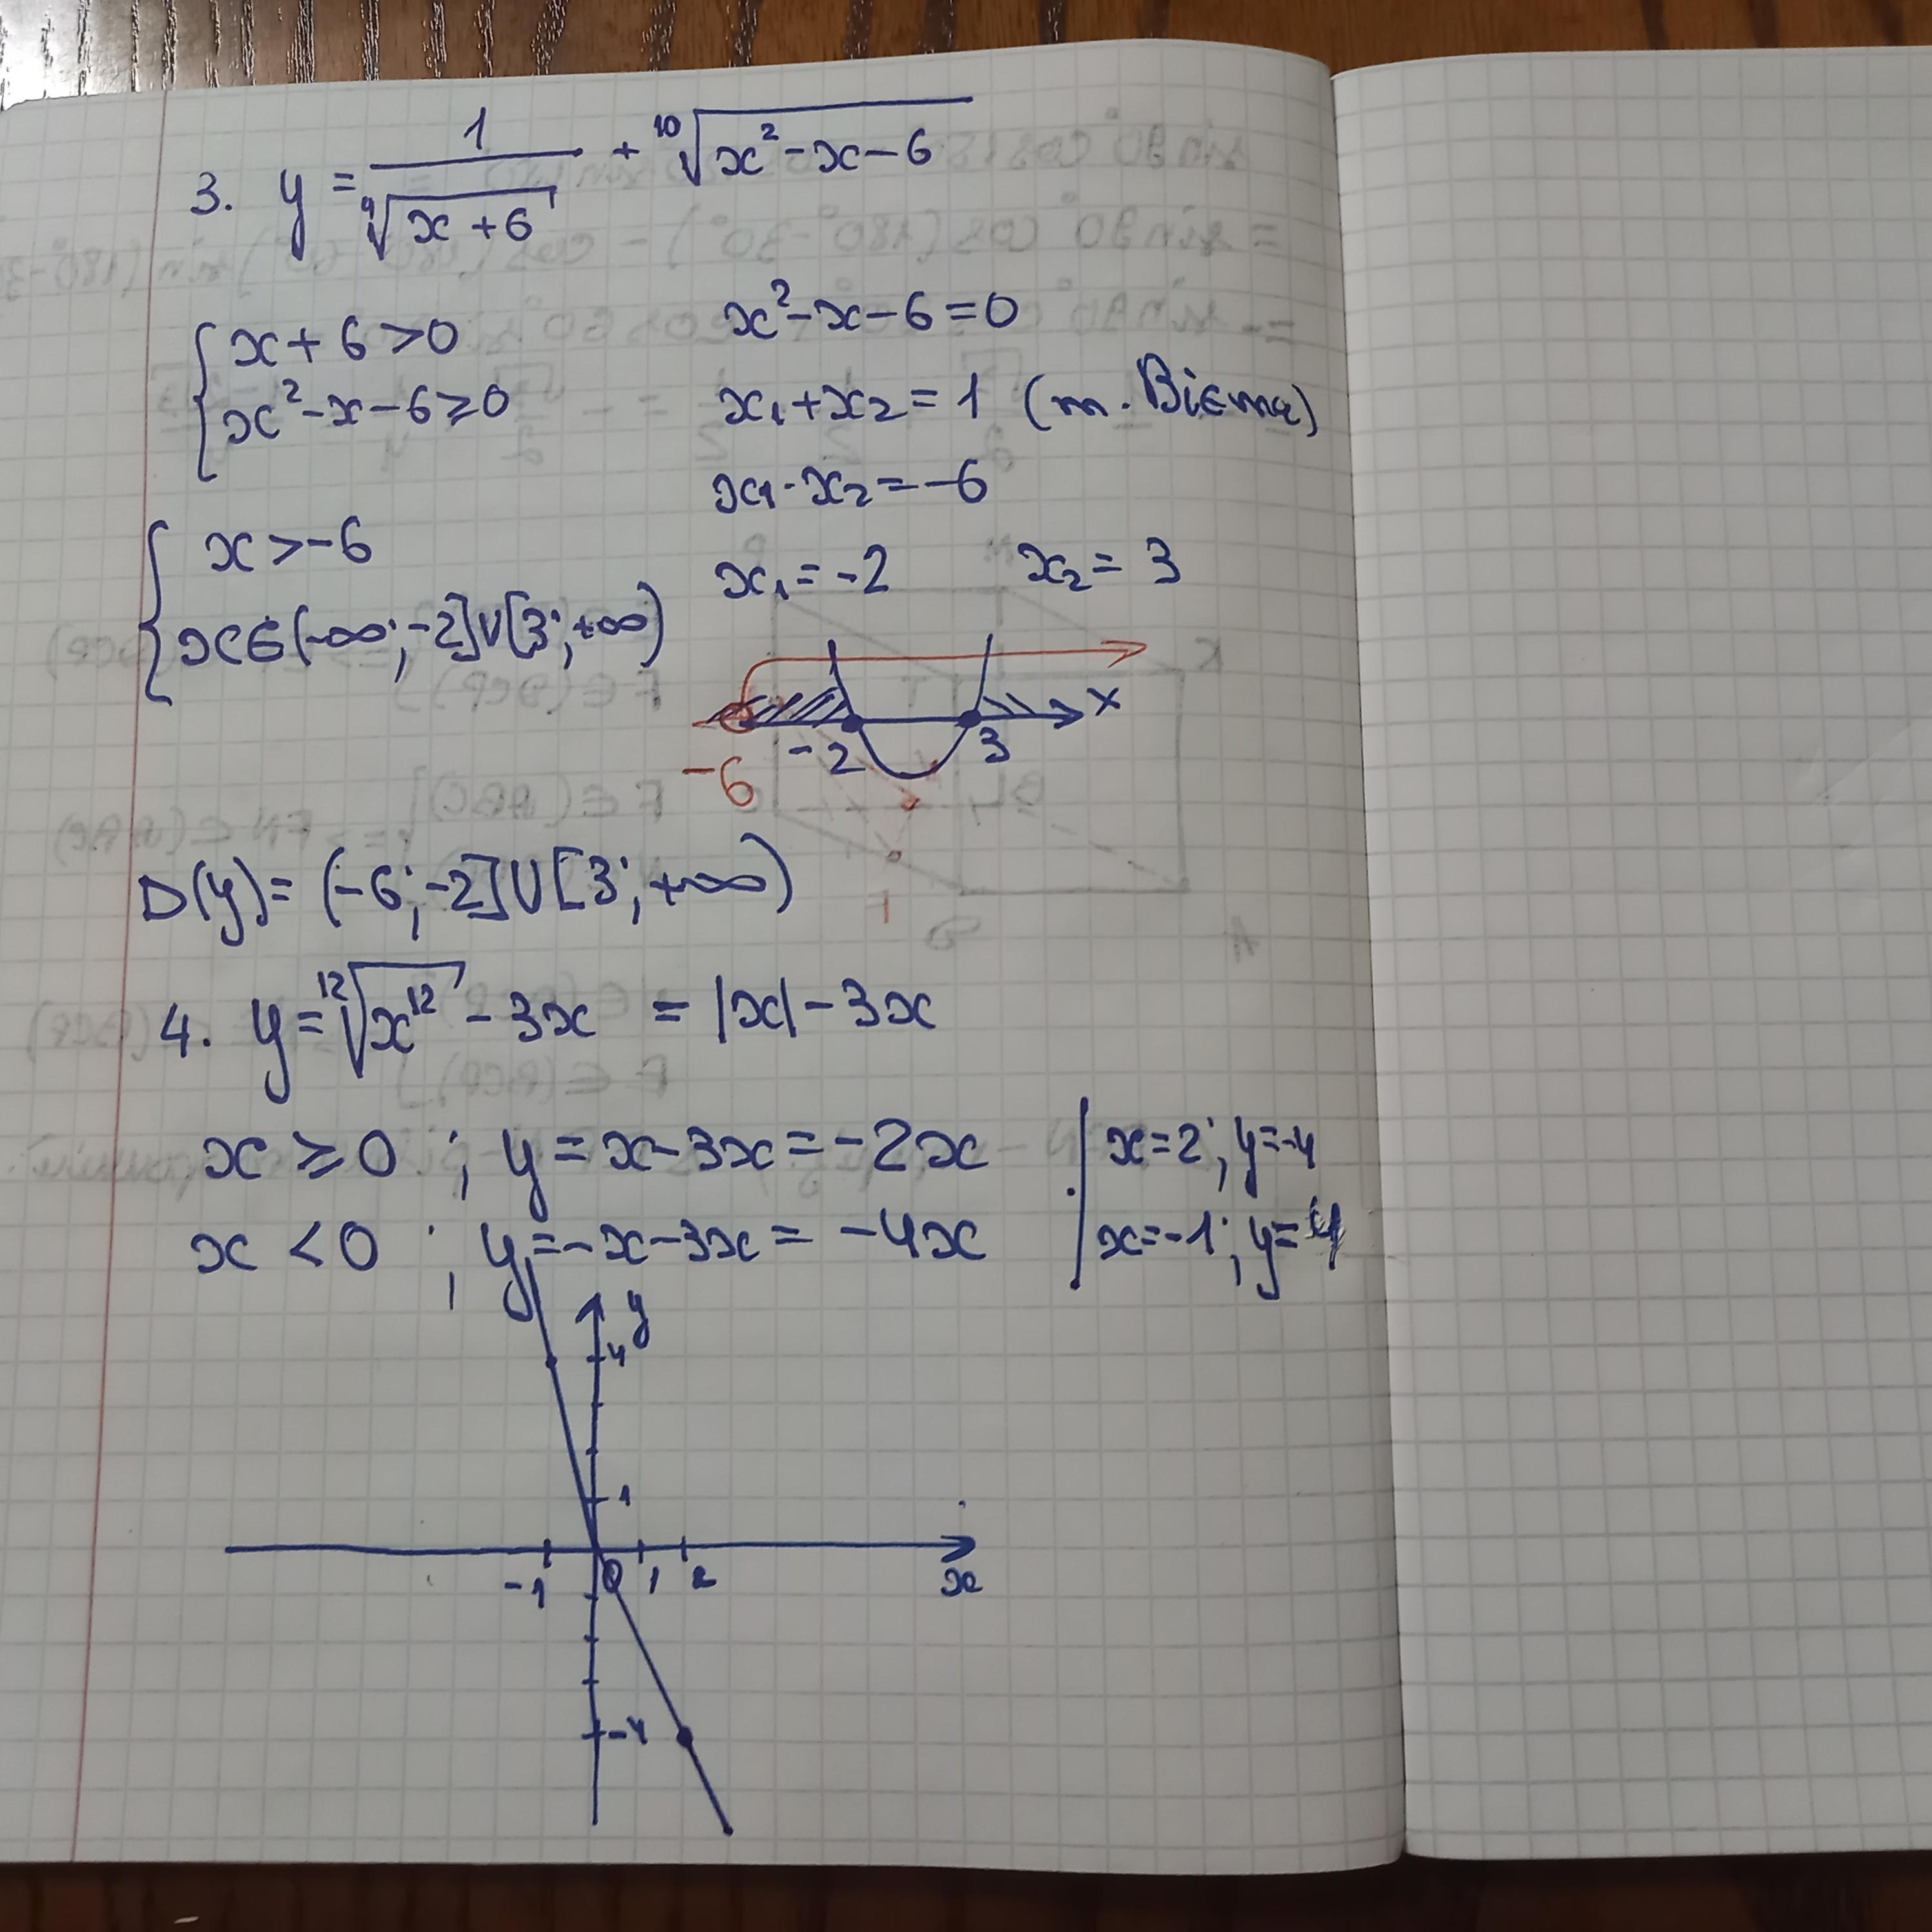 3. y = 1/⁴√(x+6) + ¹⁰√(x²-x-6)
{ x+6>0
x²-x-6≥0
{ x>-6
x∈(-∞;-2]∪[3;+∞)
x²-x-6=0
x₁+x₂=1 (т. Вієта)
x₁·x₂=-6
x₁=-2 x₂=3
x
-2 3
-6
D(y)=(-6;-2]∪[3;+∞)
4. y=¹²√(x¹²) - 3x = |x| - 3x
x≥0 ; y=x-3x=-2x | x=2; y=-4
x<0 ; y=-x-3x=-4x | x=-1; y=4
y
4
1
-1 0 1 2 x
-4